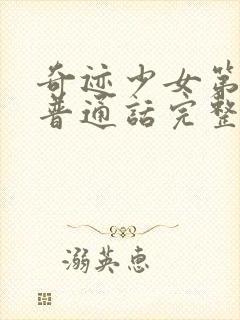 奇迹少女第
普通话完整
溺英惠